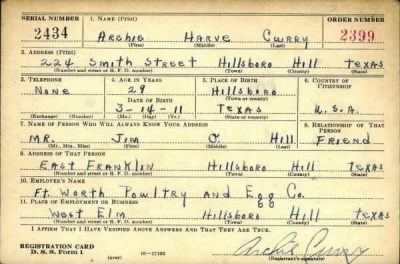 SERIAL NUMBER 1. NAME (Print) ORDER NUMBER
2434 Archie Harve Curry 2399
(First) (Middle) (Last)
2. ADDRESS (Print)
224 Smith Street Hillsboro Hill Texas
(Number and street or R. F. D. number) (Town) (County) (State)
3. TELEPHONE 4. AGE IN YEARS 5. PLACE OF BIRTH 6. COUNTRY OF CITIZENSHIP
None 29 Hillsboro
DATE OF BIRTH (Town or county)
3-14-11 Texas U.S.A.
(Exchange) (Number) (Mo.) (Day) (Yr.) (State or country)
7. NAME OF PERSON WHO WILL ALWAYS KNOW YOUR ADDRESS 8. RELATIONSHIP OF THAT PERSON
Mr. Jim O. Hill Friend
(Mr., Mrs., Miss) (First) (Middle) (Last)
9. ADDRESS OF THAT PERSON
East Franklin Hillsboro Hill Texas
(Number and street or R. F. D. number) (Town) (County) (State)
10. EMPLOYER'S NAME
Ft. Worth Poultry and Egg Co.
11. PLACE OF EMPLOYMENT OR BUSINESS
West Elm Hillsboro Hill Texas
(Number and street or R. F. D. number) (Town) (County) (State)
I AFFIRM THAT I HAVE VERIFIED ABOVE ANSWERS AND THAT THEY ARE TRUE.
REGISTRATION CARD Archie Curry
D. S. S. Form 1 (over) 16-17105 (Registrant's signature)